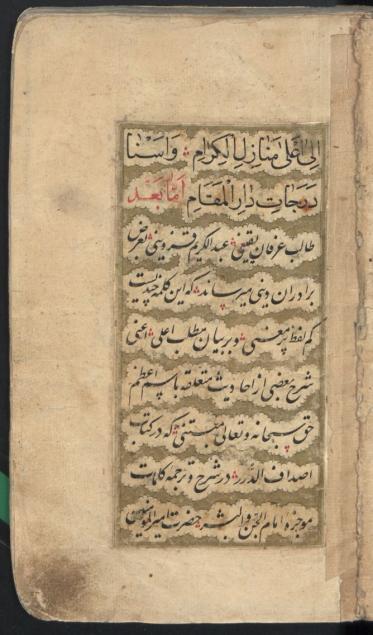 اِلیٰ اَعْلیٰ مَنازِلِ الْکِرامِ وَ اَسْنا
دَرَجاتِ دارِ الْمَقامِ اَمّا بَعْد
طالب عرفان یقینی عبدالکریم قزوینی بعرض
برادران دینی میرساند که این کلمه چندیست
کم لفظ پر معنی و بر بیان مطلب اعلی اعنی
شرح بعضی از احادیث متعلقه باسم اعظم
حق سبحانه و تعالی مبتنی که در کتاب
اصداف الدّرر در شرح و ترجمه کلمات
موجزه امام الجنّ و البشر حضرت امیر المؤمنین